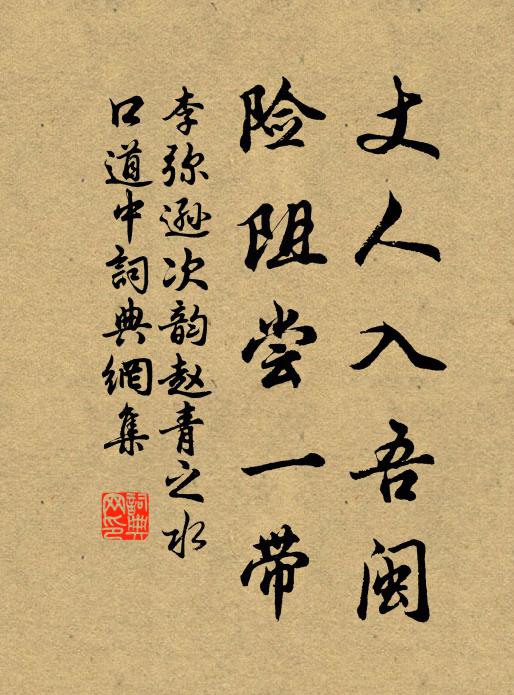 丈人入吾闽
险阻尝一带
李弥逊次韵赵青之水
口道中詞典網集
詞典网印